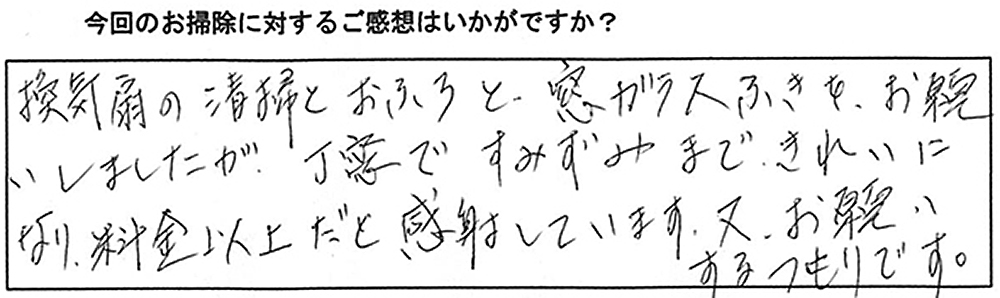 今回のお掃除に対するご感想はいかがですか？
換気扇の清掃とおふろと、窓ガラスふきを、お願
いしましたが、丁寧ですみずみまで、きれいに
なり、料金以上だと感謝しています、又、お願い
するつもりです。